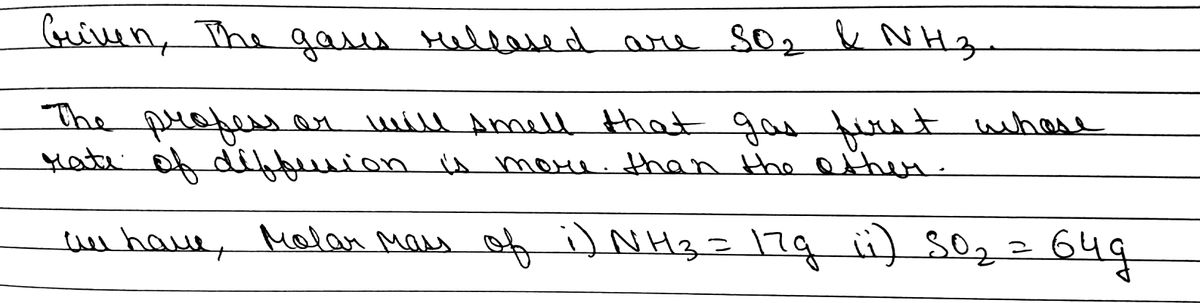 Given, The gases released are SO2 & NH3.
The professor will smell that gas first whose
rate of diffusion is more. than the other.
we have, Molar Mass of i) NH3 = 17g ii) SO2 = 64g